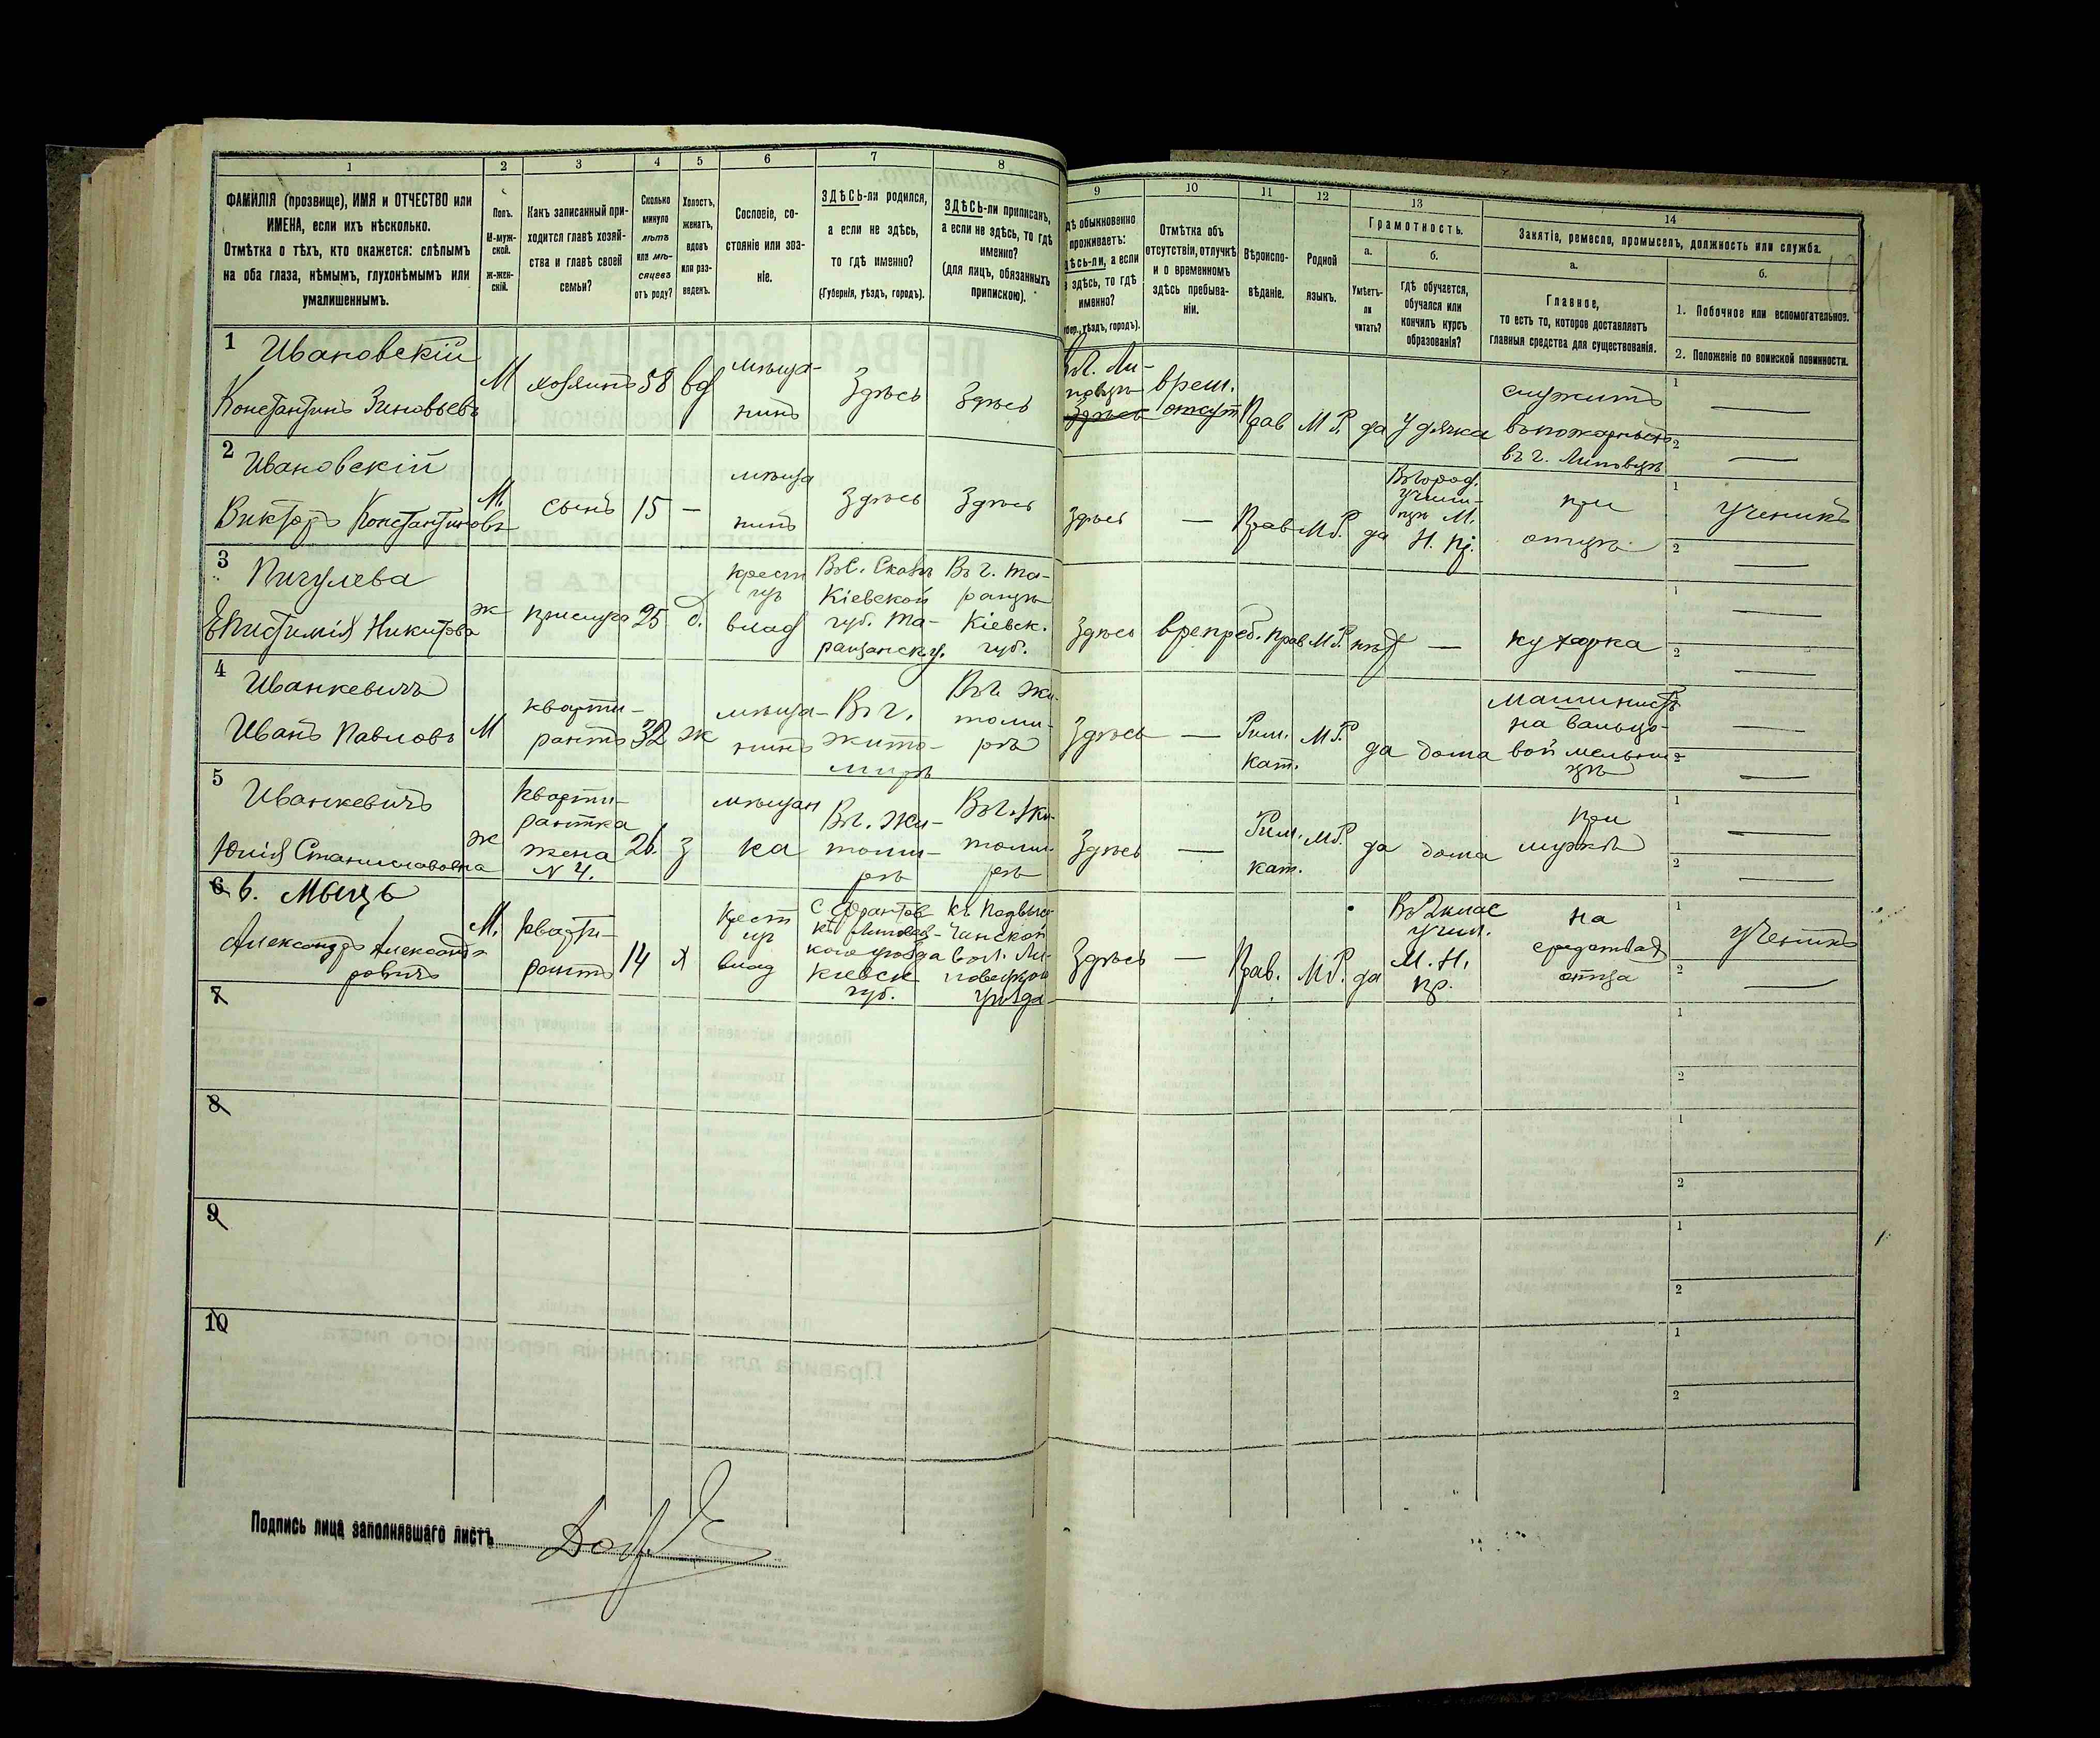 1
2
3
4
5
6
7
8
ФАМИЛІЯ (прозвище), ИМЯ и ОТЧЕСТВО или
ИМЕНА, если ихъ нѣсколько.
Отмѣтка о тѣхъ, кто окажется: слѣпымъ
на оба глаза, нѣмымъ, глухонѣмымъ или
умалишеннымъ.
Полъ.
М-муж-
ской.
ж-жен-
скій.
Какъ записанный при-
ходится главѣ хозяй-
ства и главѣ своей
семьи?
Сколько
минуло
лѣтъ
или мѣ-
сяцевъ
отъ роду?
Холостъ,
женатъ,
вдовъ
или раз-
веденъ.
Сословіе, со-
стояніе или зва-
ніе.
ЗДѢСЬ-ли родился,
а если не здѣсь,
то гдѣ именно?
(Губернія, уѣздъ, городъ).
ЗДѢСЬ-ли приписанъ,
а если не здѣсь, то гдѣ
именно?
(для лицъ, обязанныхъ
припискою).
9
10
11
12
13
14
дѣ обыкновенно
проживаетъ:
здѣсь-ли, а если
не здѣсь, то гдѣ
именно?
(Губер., уѣздъ, городъ).
Отмѣтка объ
отсутствіи, отлучкѣ
и о временномъ
здѣсь пребыва-
ніи.
Вѣроиспо-
вѣданіе.
Родной
языкъ.
Грамотность.
а.
Умѣетъ-
ли
читать?
б.
гдѣ обучается,
обучался или
кончилъ курсъ
образованія?
Занятіе, ремесло, промыселъ, должность или служба.
а.
Главное,
то есть то, которое доставляетъ
главныя средства для существованія.
б.
1. Побочное или вспомогательное.
2. Положеніе по воинской повинности.
1 Ивановскій
Константинъ Зиновьевъ
М
хозяинъ
58
вд
мѣща-
нинъ
Здѣсь
Здѣсь
Въ г. Ли-
повцѣ
Здѣсь
врем.
отсут
Прав
М Р.
да
У дьячка
служитъ
въ г. Липовцѣ
1 —
2 —
2 Ивановскій
Викторъ Константиновъ
М.
сынъ
15
—
мѣща
нинъ
Здѣсь
Здѣсь
Здѣсь
—
Прав
М Р.
да
Въ город.
учили-
щѣ М.
Н. Пр.
при
отцѣ
1 Ученикъ
2 —
3 Пигулева
Епистимія Никитова
ж
прислуга
25
д.
крест
влад
Кіевской
губ. Та-
ращанск у.
Въ г. Та-
ращѣ
Кіевск.
губ.
Здѣсь
вр преб.
Прав
М Р.
нѣт
—
кухарка
1 —
2 —
4 Иванкевичъ
Иванъ Павловъ
М
кварти-
рантъ
32
ж
мѣща-
нинъ
Въ г.
Жито-
мирѣ
Въ г. Жи-
томи-
рѣ
Здѣсь
—
Рим.
кат.
М Р.
да
дома
машинистъ
на вальцо-
вой мельни-
цѣ
1 —
2 —
5 Иванкевичъ
Юлія Станиславовна
ж
кварти-
рантка
жена
N 4.
26.
з
мѣщан
ка
Въ г. Жи-
томи-
рѣ
Въ г. Жи-
томи-
рѣ
Здѣсь
—
Рим.
кат.
М Р.
да
дома
при
мужѣ
1 —
2 —
6 6. Мыць
Александръ Александ-
ровичъ
М.
кварти-
рантъ
14
х
крест
влад
кіевск
губ.
уѣзда
Здѣсь
—
Прав.
М Р.
да
Въ 2 клас
учил.
М. Н.
пр.
на
средствах
отца
1 Ученикъ
2 —
7
1
2
8
1
2
9
1
2
10
1
2
Подпись лица заполнявшаго листъ